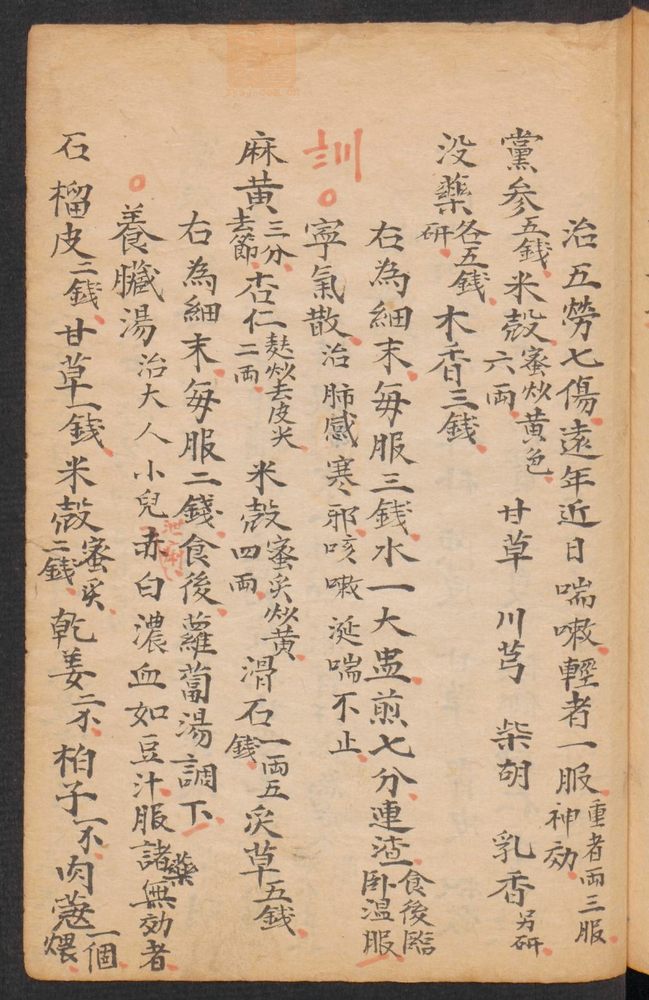 治五勞七傷遠年近日喘嗽輕者一服神効重者両三服
黨參五錢米殼蜜炒黄色六両甘草川芎柴胡乳香另研
没藥各五錢研木香三錢
右為細末每服三錢水一大盅煎七分連渣食後臨卧温服
寧氣散治肺感寒邪咳嗽涎喘不止
麻黄三分去節杏仁麩炒去皮尖二両米殼蜜炙炒黄四両滑石一両五錢炙草五錢
右為細末每服二錢食後蘿蔔湯調下
養臟湯治大人小兒赤白濃血如豆汁服諸藥無効者
石榴皮三錢甘草一錢米殼蜜炙二錢乾姜二不柏子一不肉蔻一個煨